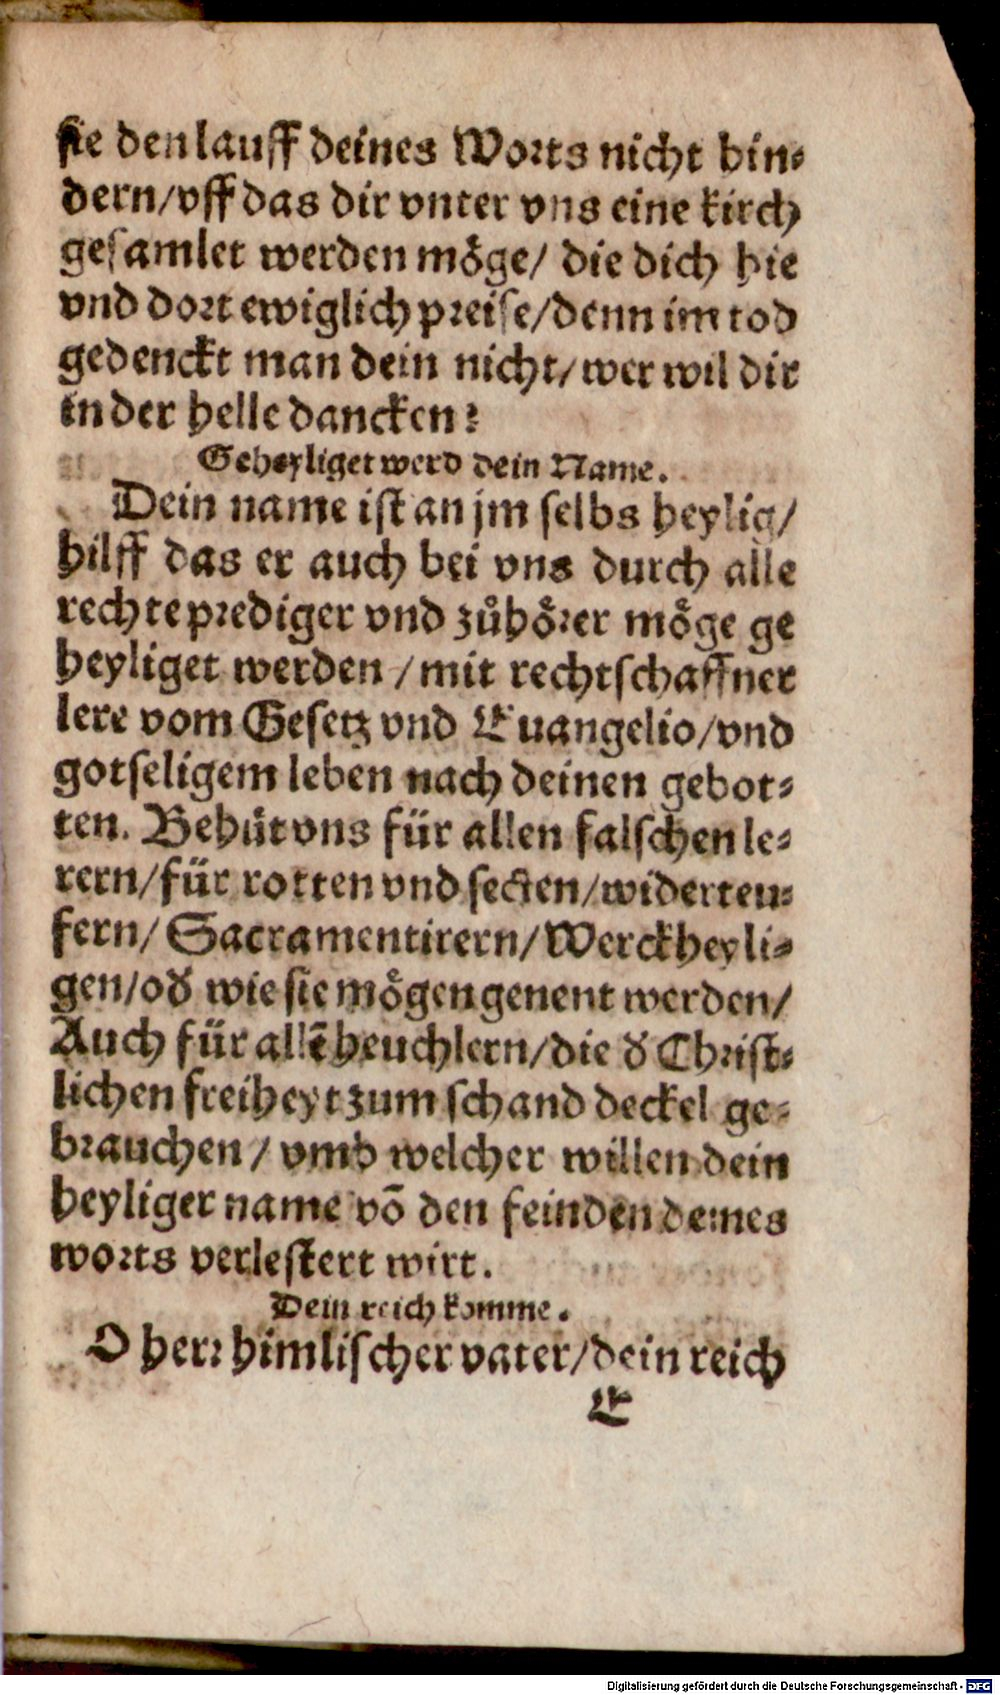 sie den lauff deines Worts nicht hin-
dern/vff das dir vnter vns eine kirch
gesamlet werden möge/ die dich hie
vnd dort ewiglich preise/denn im tod
gedenckt man dein nicht/wer wil dir
in der helle dancken?
Geheyliget werd dein Name.
Dein name ist an jm selbs heylig/
hilff das er auch bei vns durch alle
rechte prediger vnd zůhörer möge ge
heyliget werden/mit rechtschaffner
lere vom Gesetz vnd Euangelio/vnd
gotseligem leben nach deinen gebot-
ten. Behüt vns für allen falschen le-
rern/für rotten vnd secten/widerteu-
fern/Sacramentirern/Werckheyli-
gen/oď wie sie mögen genent werden/
Auch für allẽ heuchlern/die ď Christ-
lichen freiheyt zum schand deckel ge-
brauchen/vmb welcher willen dein
heyliger name võ den feinden deines
worts verlestert wirt.
Dein reich komme.
O herr himlischer vater/dein reich
E
Digitalisierung gefördert durch die Deutsche Forschungsgemeinschaft - DFG